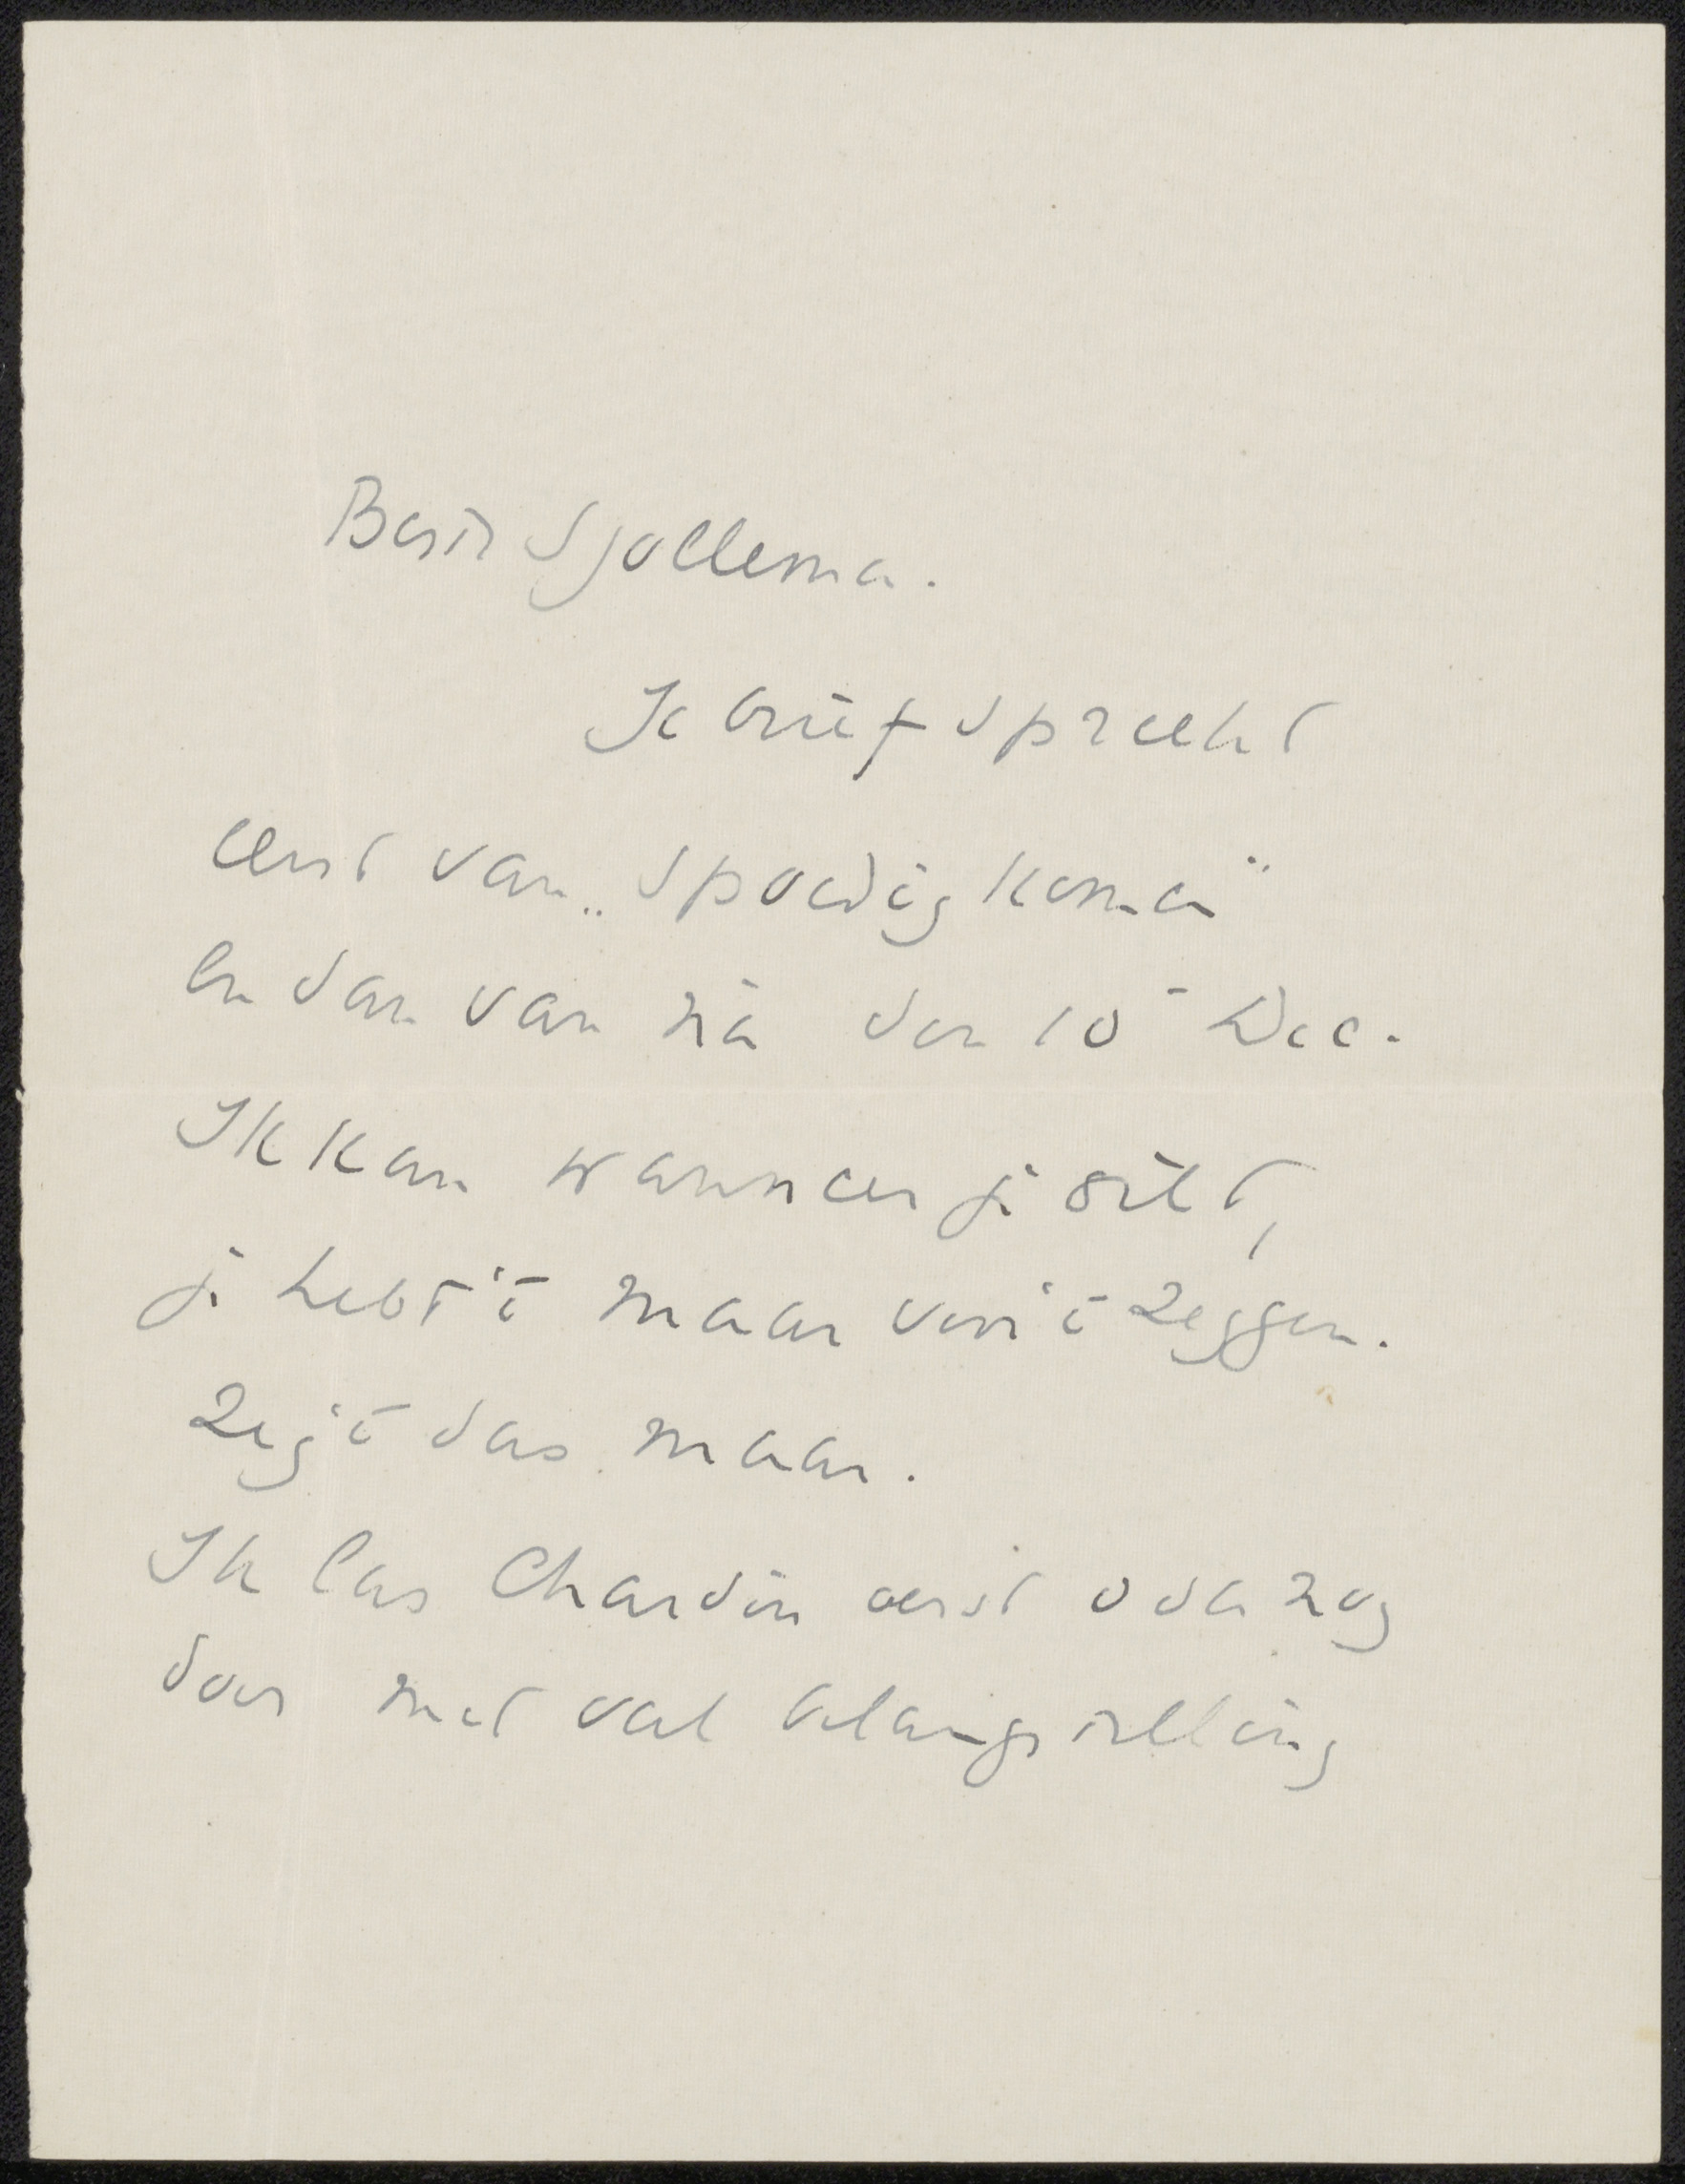 Beste Sjollema.
Je brief spreekt
eerst van „spoedig komen"
en dan van ná den 10e Dec.
Ik kan wanneer je wilt,
je hebt 't maar voor 't zeggen.
Zeg 't dus maar.
Ik las Chardin eerst
door met veel belangstelling